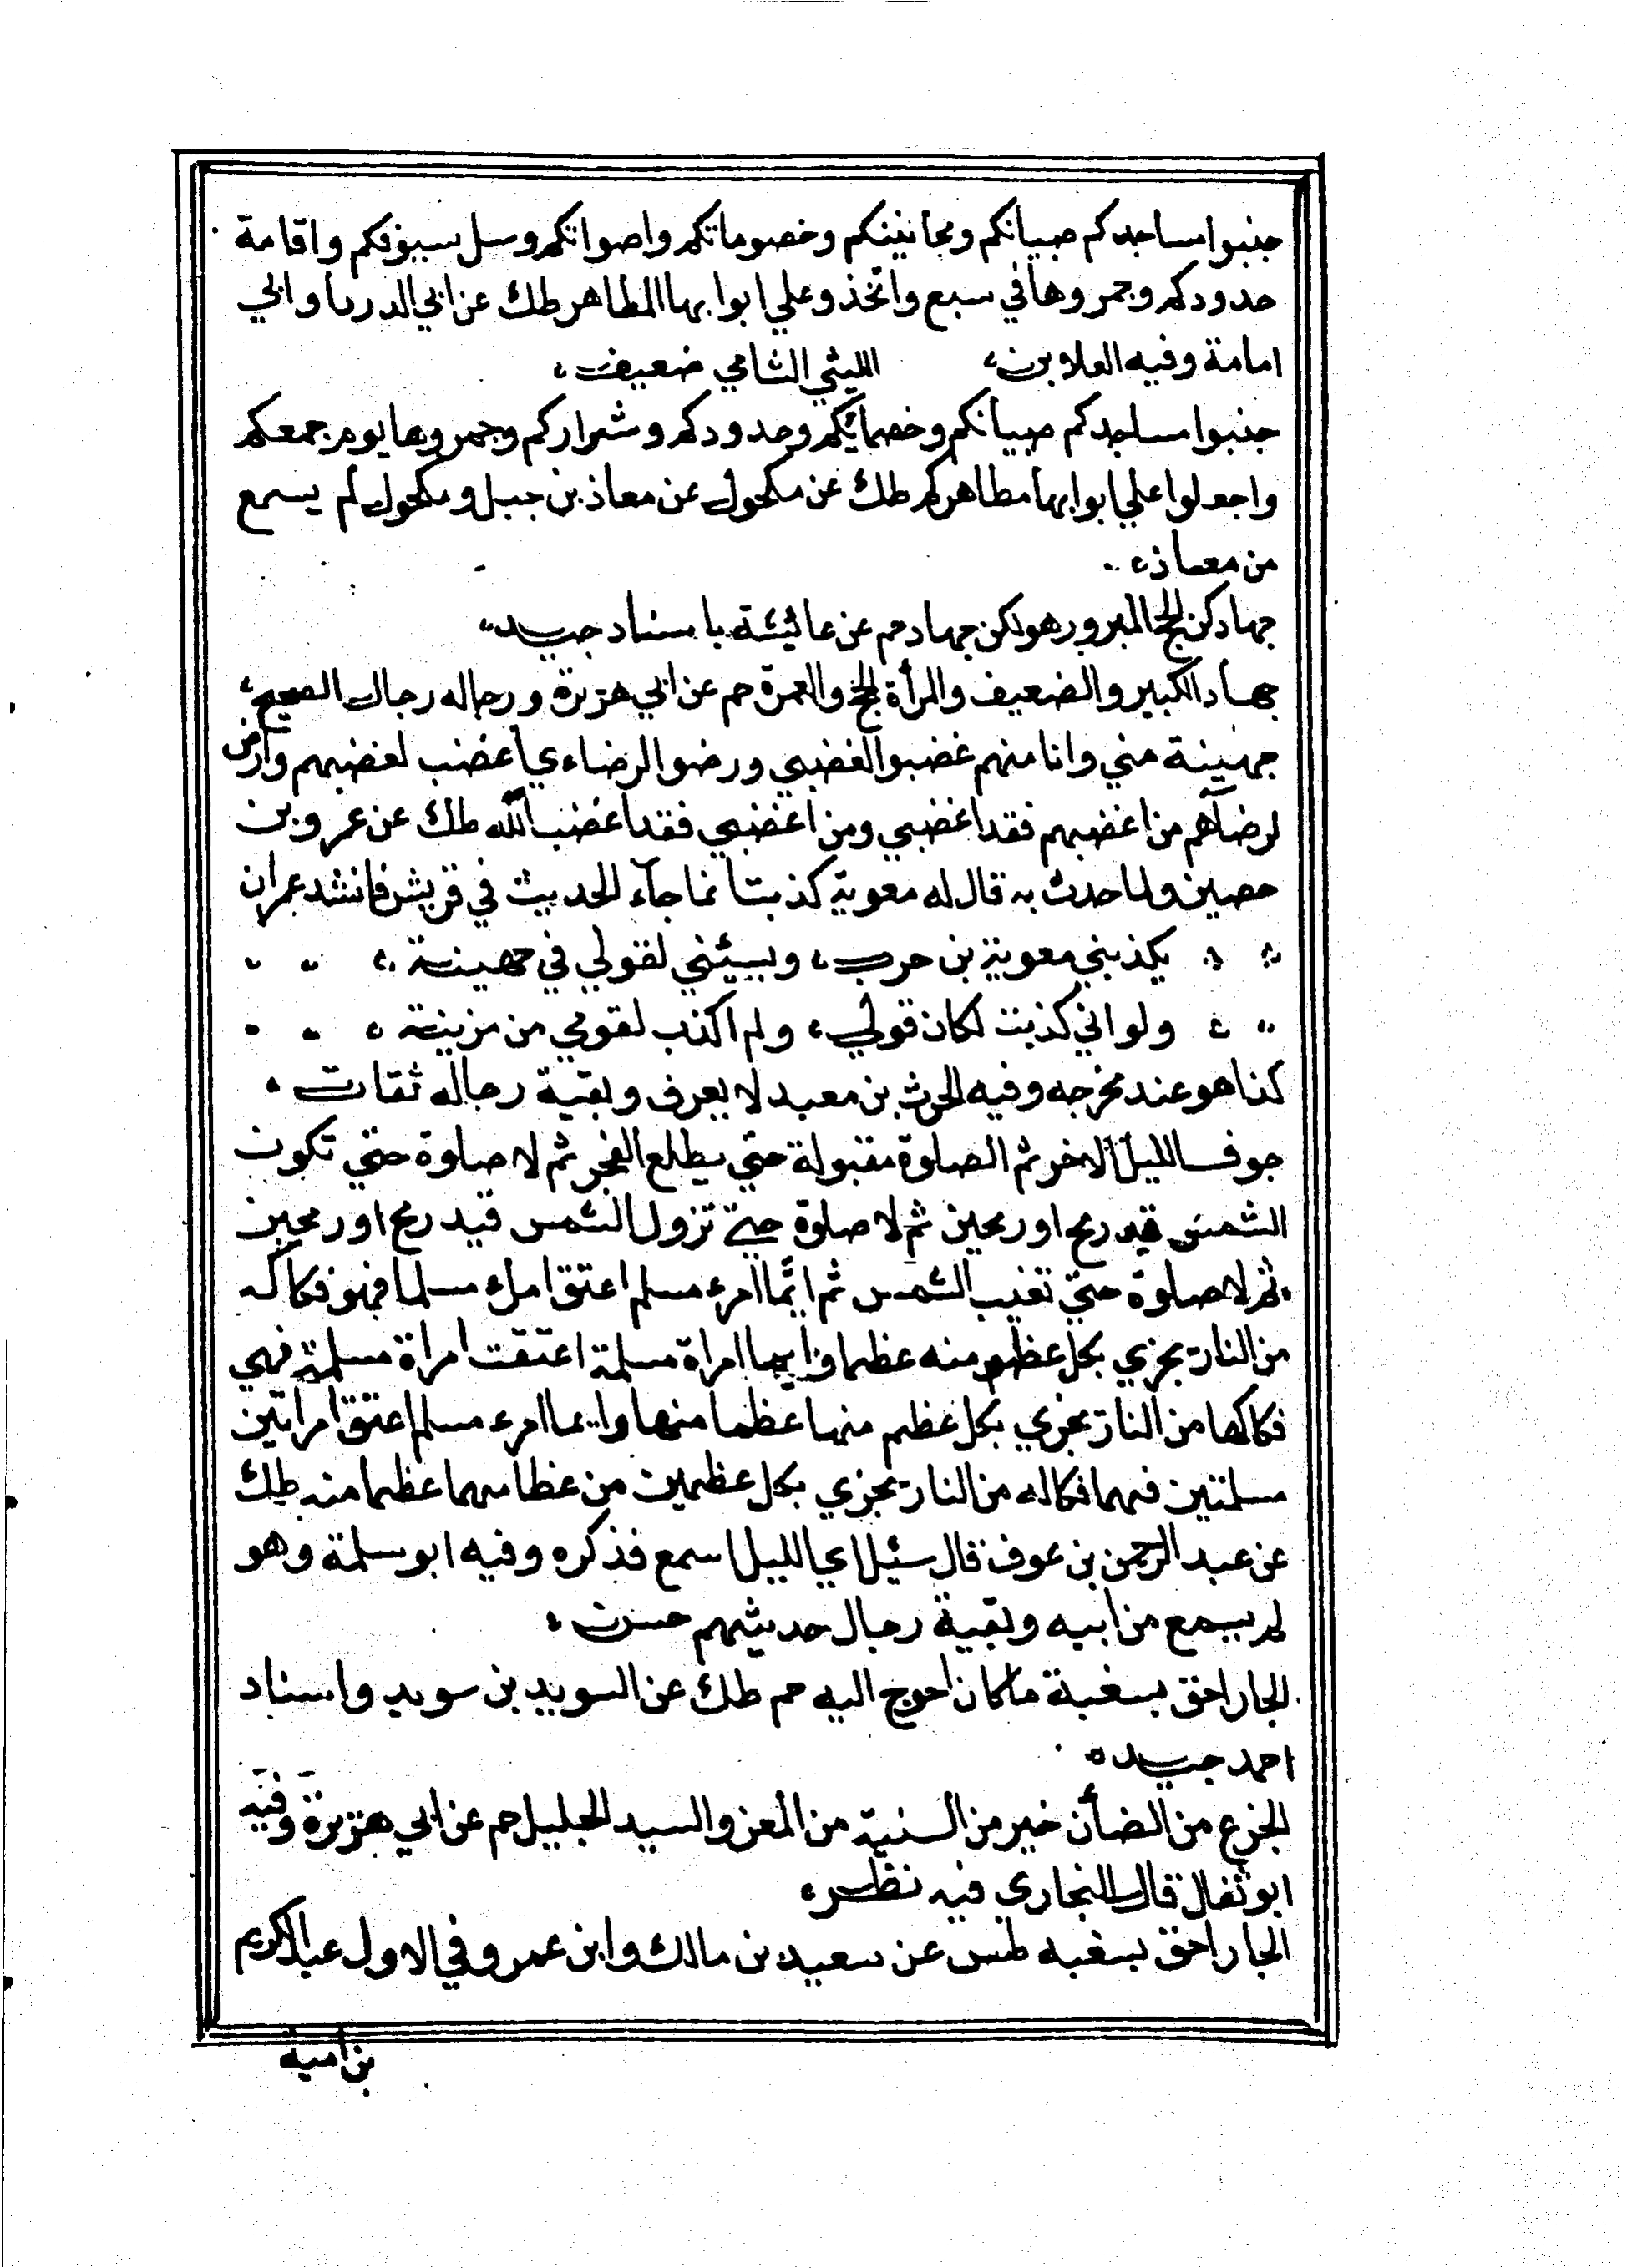 جنبوا مساجدكم صبيانكم ومجانينكم وخصوماتكم واصواتكم وسل سيوفكم واقامة
حدودكم وجمروها في سبع واتخذوعلي ابوابها المطاهر طك عن ابي الدردا وابي
امامة وفيه العلا بن، الليثي الشامي ضعيف،
جنبوا مساجدكم صبيانكم وخصمايكم وحدودكم وشراركم وجمروها يوم جمعكم
واجعلوا علي ابوابها مطاهركم طك عن مكحول عن معاذ بن جبل ومكحول لم يسمع
من معاذ،
جهادكن الحج المبرور هولكن جهاد حم عن عائيشة باسناد جيد،
جهاد الكبير والضعيف والمرأة الحج والعمرة حم عن ابي هريرة ورجاله رجال الصحيح،
جهينة مني وانا منهم غضبوا لغضبي ورضوا لرضاءي أغضب لغضبهم وارض
لرضآهم من اغضبهم فقد اغضبي ومن اغضبي فقد اغضب الله طك عن عمرو بن
حصين ولما حدث به قال له معوية كذبت انما جآء الحديث في قريش فانشد عمران
يكذبني معوية بن حرب، ويسيئني لقولي في جهينة،
ولو اني كذبت لكان قولي، ولم اكذب لقومي من مزينة،
كذا هو عند مخرجه وفيه الحرث بن معبد لا يعرف وبقية رجاله ثقات،
جوف الليل الاخر ثم الصلوة مقبولة حتي يطلع الفجر ثم لا صلوة حتي تكون
الشمس قيد رمح او رمحين ثم لا صلوة حتي تزول الشمس قيد رمح او رمحين
ثم لا صلوة حتي تغيب الشمس ثم ايّما امرء مسلم اعتق امرء مسلما فهو فكاكه
من النار يجزي بكل عظم منه عظما وايما امراة مسلمة اعتقت امراة مسلمة فهي
فكاكها من النار يجزي بكل عظم منها عظما منها وايما امرء مسلم اعتق امراتين
مسلمتين فهما فكاله من النار يجزي بكل عظمين من عظامهما عظما منه طك
عن عبد الرحمن بن عوف قال سئيل اي الليل اسمع فذكره وفيه ابو سلمة وهو
لم يسمع من ابيه وبقية رجال حديثهم حسن،
الجار احق بسغبة ما كان احوج اليه حم طك عن السويد بن سويد واسناد
احمد جيد
الجزع من الضأن خير من السنية من المعز والسيد الجليل حم عن ابي هريرة وفيه
ابو ثفال قال البخاري فيه نظر،
الجار احق بسغبه طس عن سعيد بن مالك وابن عمر وفي الاول عبد الكريم
بن امية